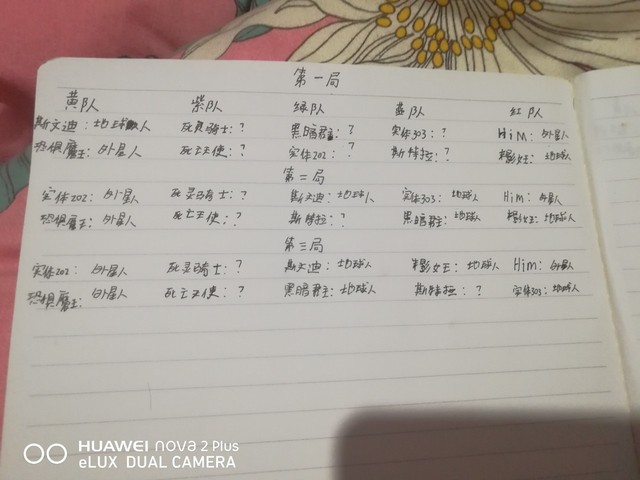 第一局
黄队 紫队 绿队 蓝队 红队
斯文迪：地球人 死灵骑士：？ 黑暗君主：？ 实体303：？ HiM：外星人
恐惧魔王：外星人 死亡天使：？ 实体202：？ 斯特拉：？ 粉女王：地球人
第二局
实体202：外星人 死灵骑士：？ 斯文迪：地球人 实体303：地球人 Him：外星人
恐惧魔王：外星人 死亡天使：？ 斯特拉：？ 黑暗君主：地球人 女王：地球人
第三局
实体202：外星人 死灵骑士：？ 斯文迪：地球人 女王：地球人 Him：外星人
恐惧魔王：外星人 死亡天使：？ 黑暗君主：地球人 斯特拉：？ 实体303：地球人
HUAWEI nova 2 Plus
eLUX DUAL CAMERA